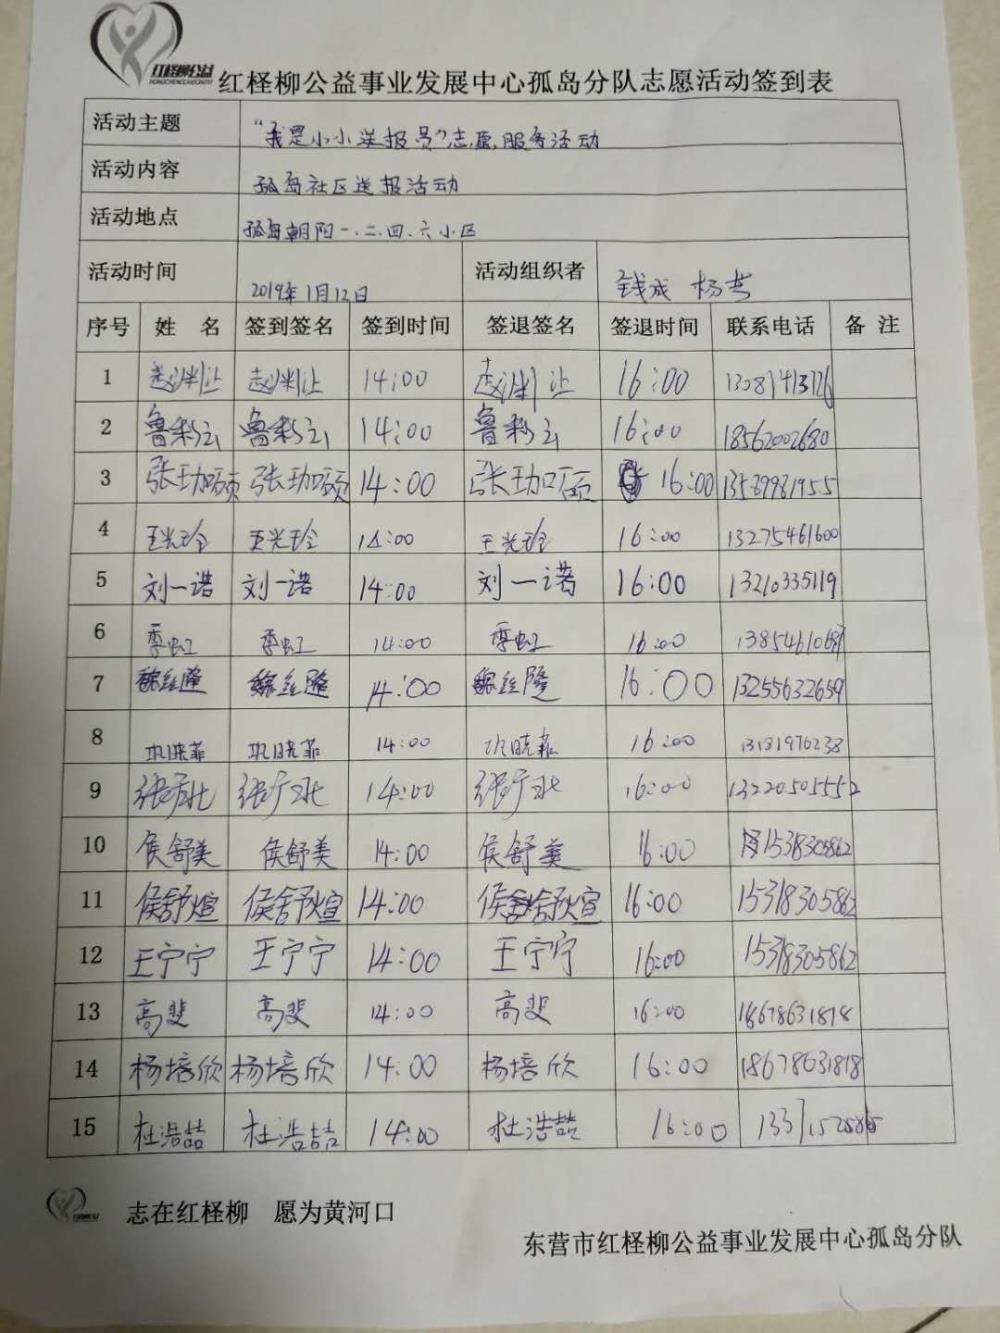 红柽柳公益
红柽柳公益事业发展中心孤岛分队志愿活动签到表
活动主题 “我是小小送报员”志愿服务活动
活动内容 孤岛社区送报活动
活动地点 孤岛朝阳一、二、四、六小区
活动时间 2019年1月12日 活动组织者 钱成 杨芸
序号 姓 名 签到签名 签到时间 签退签名 签退时间 联系电话 备 注
1 14:00 16:00
2 鲁彩云 鲁彩云 14:00 鲁彩云 16:00 18562002680
3 张珈硕 张珈硕 14:00 张珈硕 16:00 13589981955
4 王光玲 王光玲 14:00 王光玲 16:00 13275461600
5 刘一诺 刘一诺 14:00 刘一诺 16:00 13210335119
6 季虹 季虹 14:00 季虹 16:00
7 14:00 16:00 13255632659
8 巩晓菲 巩晓菲 14:00 巩晓菲 16:00 13181976238
9 14:00 16:00 13220505552
10 侯舒美 侯舒美 14:00 侯舒美 16:00
11 侯舒煊 侯舒煊 14:00 侯舒煊 16:00 15318305862
12 王宁宁 王宁宁 14:00 王宁宁 16:00 15318305862
13 高斐 高斐 14:00 高斐 16:00 18678631818
14 杨培欣 杨培欣 14:00 杨培欣 16:00 18678631818
15 杜浩喆 杜浩喆 14:00 杜浩喆 16:00
志在红柽柳 愿为黄河口
东营市红柽柳公益事业发展中心孤岛分队